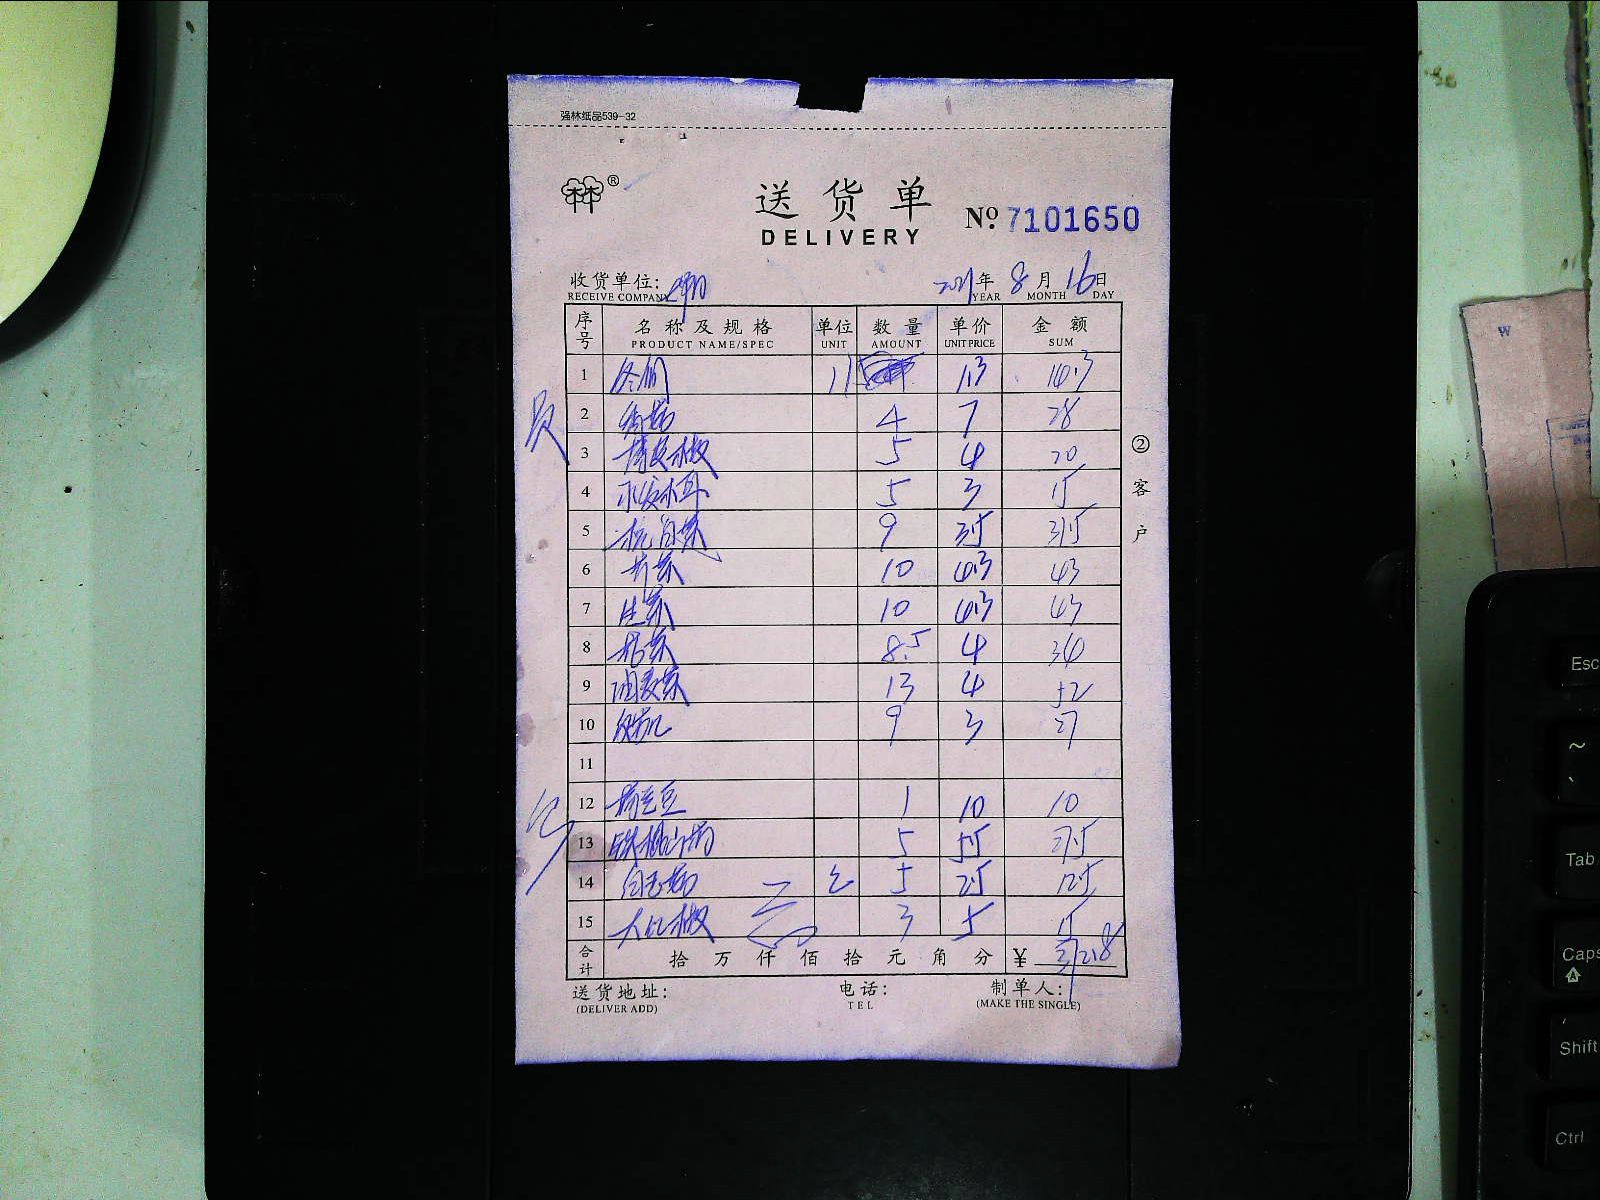 强林纸品539-32
林林®
送货单
DELIVERY
№ 7101650
收货单位:
RECEIVE COMPANY
2021年 8月 16日
YEAR MONTH DAY
序号 名称及规格 单位 数量 单价 金额
PRODUCT NAME/SPEC UNIT AMOUNT UNIT PRICE SUM
1 冬瓜 11 1.3 14.3
2 4 7 28
3 青皮椒 5 4 20
4 水发木耳 5 3 15
5 杭白菜 9 3.5 31.5
6 10 4.3 43
7 生菜 10 4.3 43
8 8.5 4 34
9 油麦菜 13 4 52
10 9 3 27
11
12 1 10 10
13 铁棍山药 5 5.5 27.5
14 白玉菇 5 2.5 12.5
15 大红椒 3 5 15
合计 拾万仟佰拾元角分 ¥
送货地址:
(DELIVER ADD)
电话:
TEL
制单人:
(MAKE THE SINGLE)
②客户
W
Esc
~
`
Tab
Caps
Shift
Ctrl